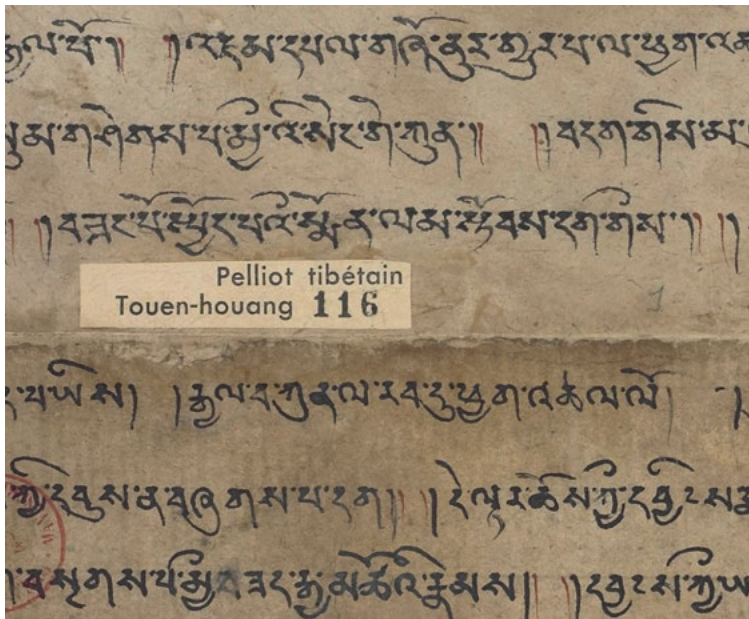 རྒྱལ་པོ།། །།འཇམ་དཔལ་གཞོ་ནུར་གྱུར་པ་ལ་ཕྱག་
སུམ་གཤེགས་པ་མྱི་འི་སེང་གེ་ཀུན།། །།བདག་གིས་མ་
།།བཟང་པོ་སྤྱོད་པའི་སྨོན་ལམ་སྟོབས་དག་གིས།། །།
Pelliot tibétain
Touen-houang 116
པ་ཡིས། །རྒྱལ་བ་ཀུན་ལ་རབ་དུ་ཕྱག་འཚལ་ལོ། །
ཀྱི་དབུས་ན་བཞུགས་པ་དག།། །།དེ་ལྟར་ཆོས་ཀྱི་དབྱིངས
བསྔགས་པ་མྱི་བཟད་རྒྱ་མཚོའི་རྣམས།། །།དབྱངས་ཀྱི་ཡ